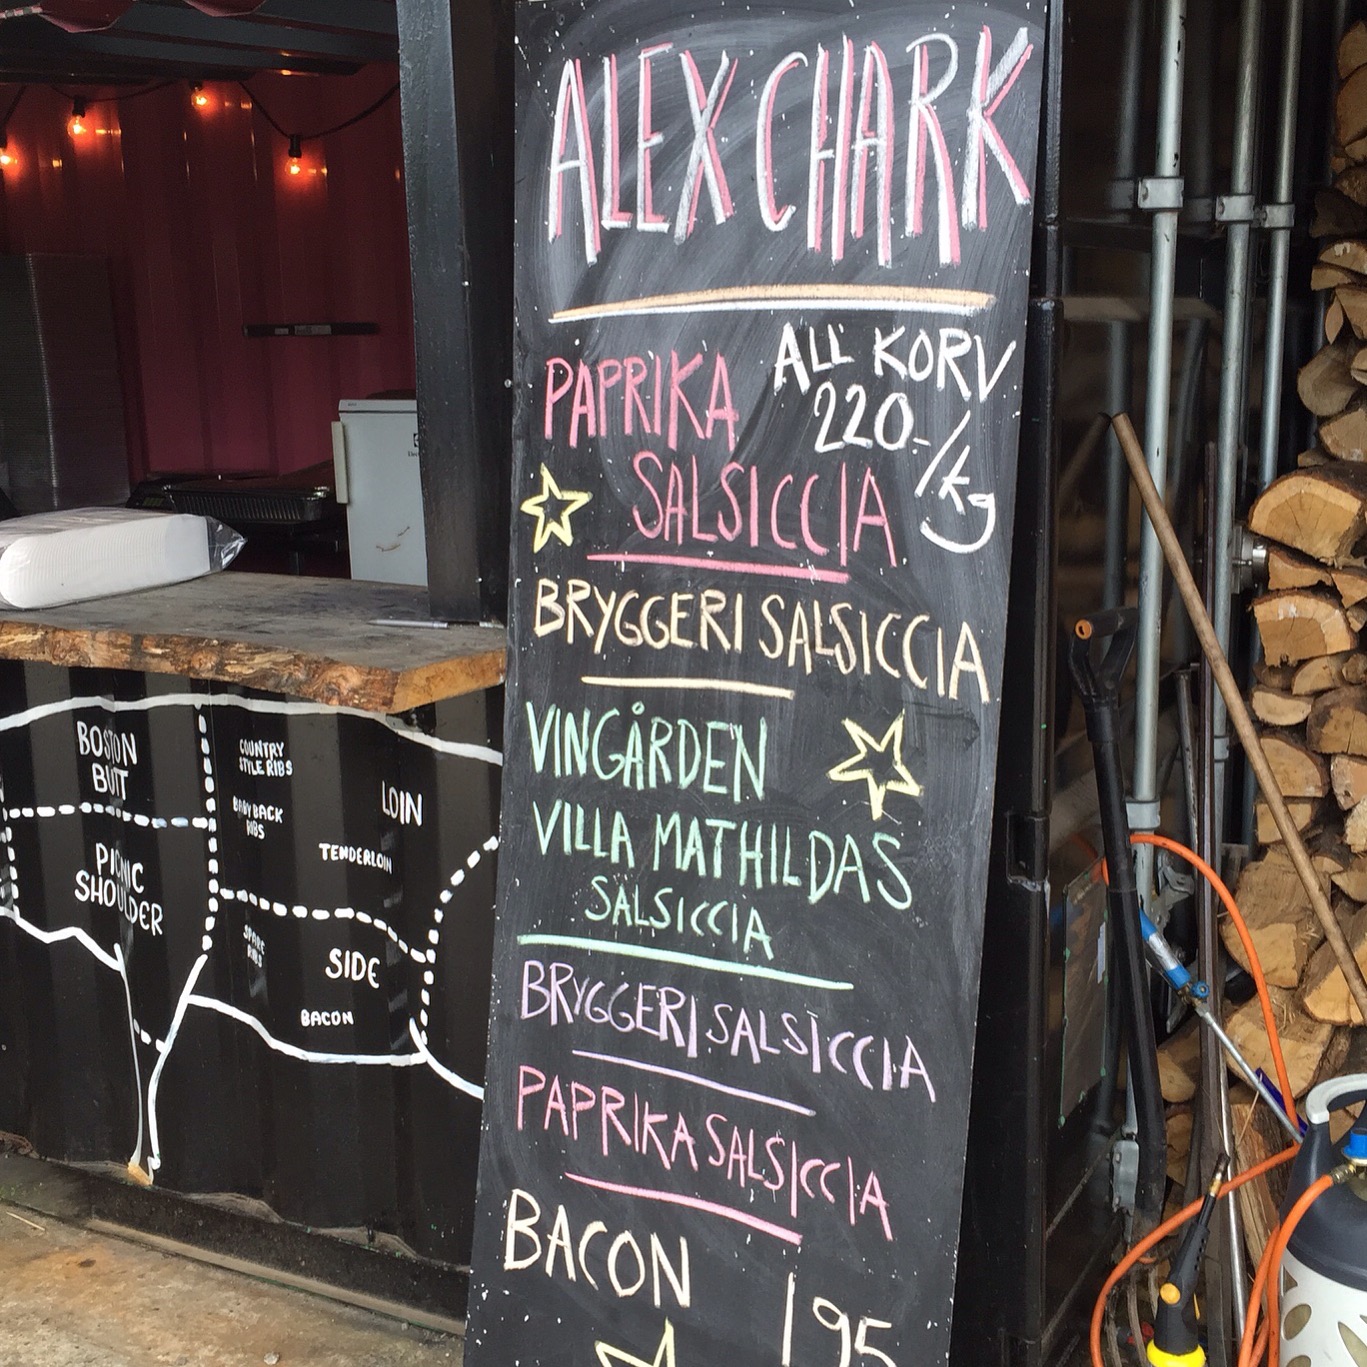 ALEX CHARK
ALL KORV
220.-/kg
PAPRIKA
SALSICCIA
BRYGGERI SALSICCIA
VINGÅRDEN
VILLA MATHILDAS
SALSICCIA
BRYGGERI SALSICCIA
PAPRIKA SALSICCIA
BACON
195
BOSTON
BUTT
PICNIC
SHOULDER
COUNTRY
STYLE RIBS
BABY BACK
RIBS
LOIN
TENDERLOIN
SPARE
RIBS
SIDE
BACON